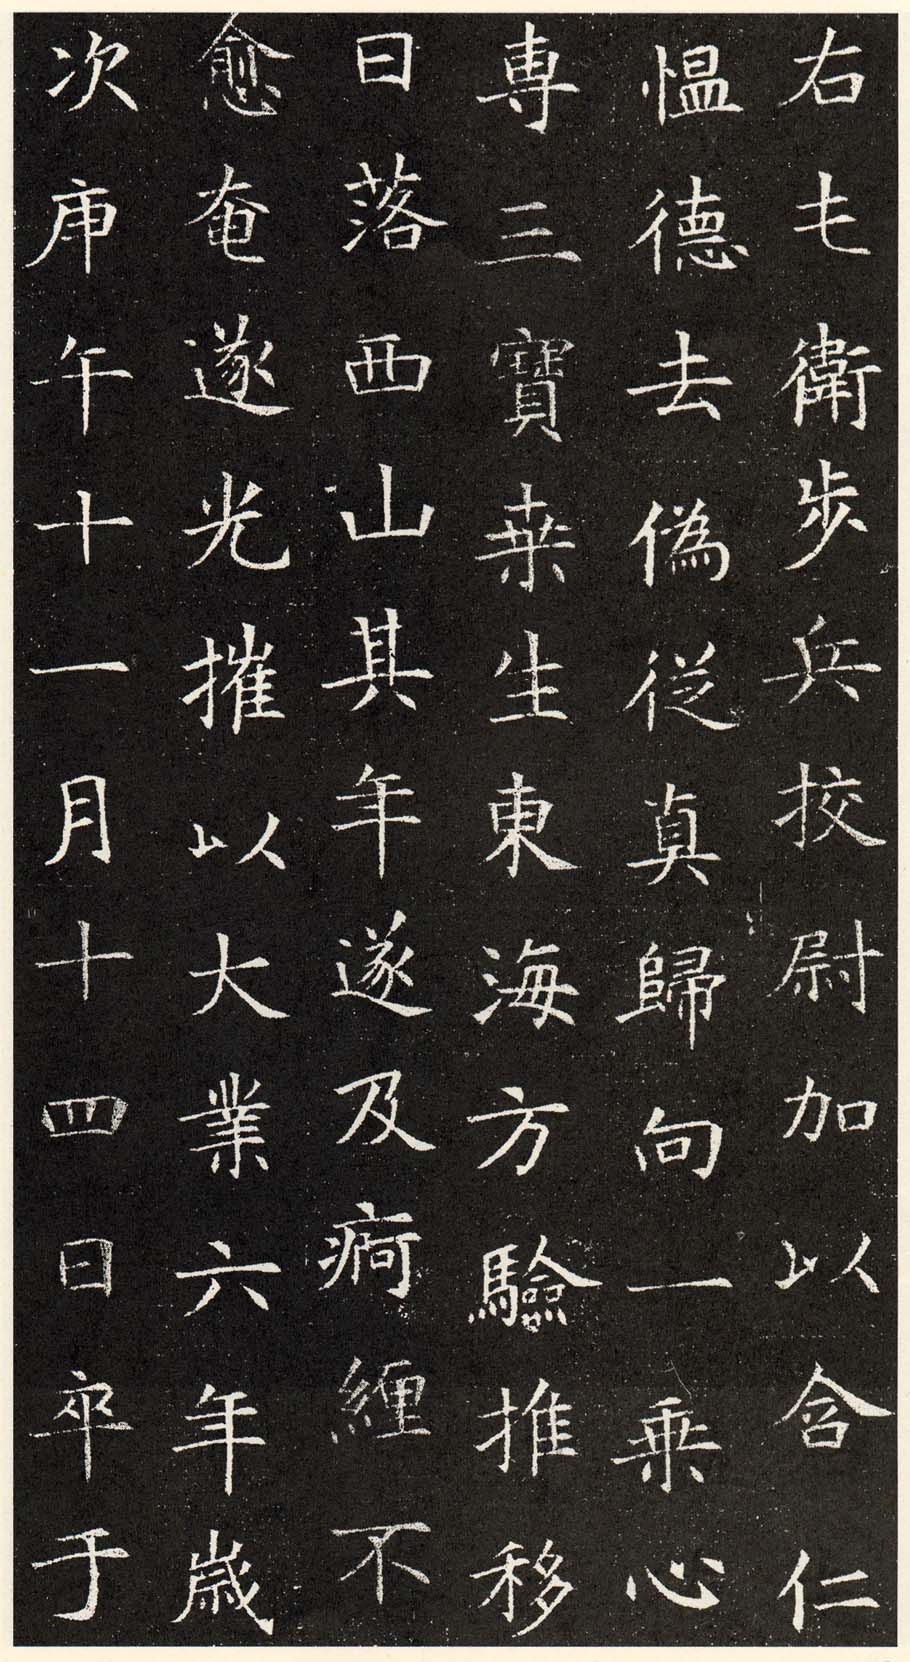 右屯衛步兵挍尉加以含仁
愠德去偽從真歸向一乗心
専三寶桒生東海方驗推移
日落西山其年遂及痾纒不
愈奄遂光摧以大業六年歳
次庚午十一月十四日卒于